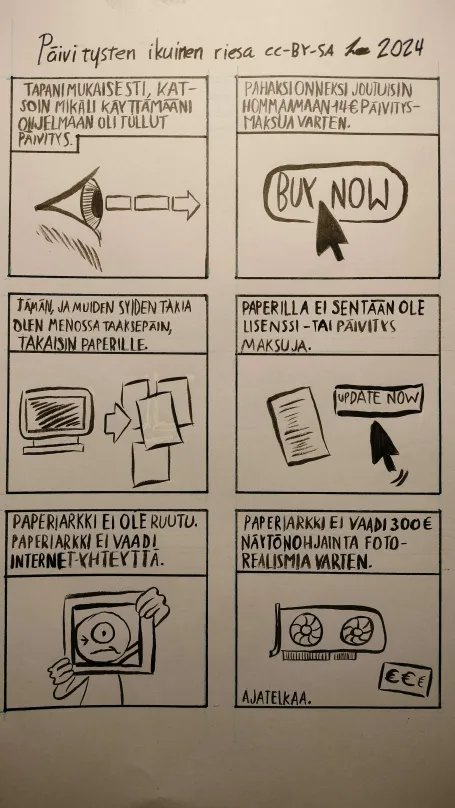 Päivitysten ikuinen riesa CC-BY-SA 2024
TAPANI MUKAISESTI, KAT-
SOIN MIKÄLI KÄYTTÄMÄÄNI
OHJELMAAN OLI TULLUT
PÄIVITYS.
PAHAKSI ONNEKSI JOUTUISIN
HOMMAAMAAN 14€ PÄIVITYS-
MAKSUA VARTEN.
BUY NOW
TÄMÄN, JA MUIDEN SYIDEN TAKIA
OLEN MENOSSA TAAKSEPÄIN,
TAKAISIN PAPERILLE.
PAPERILLA EI SENTÄÄN OLE
LISENSSI-TAI PÄIVITYS
MAKSUJA.
UPDATE NOW
PAPERIARKKI EI OLE RUUTU.
PAPERIARKKI EI VAADI
INTERNET-YHTEYTTÄ.
PAPERIARKKI EI VAADI 300€
NÄYTÖNOHJAINTA FOTO-
REALISMIA VARTEN.
€€€
AJATELKAA.